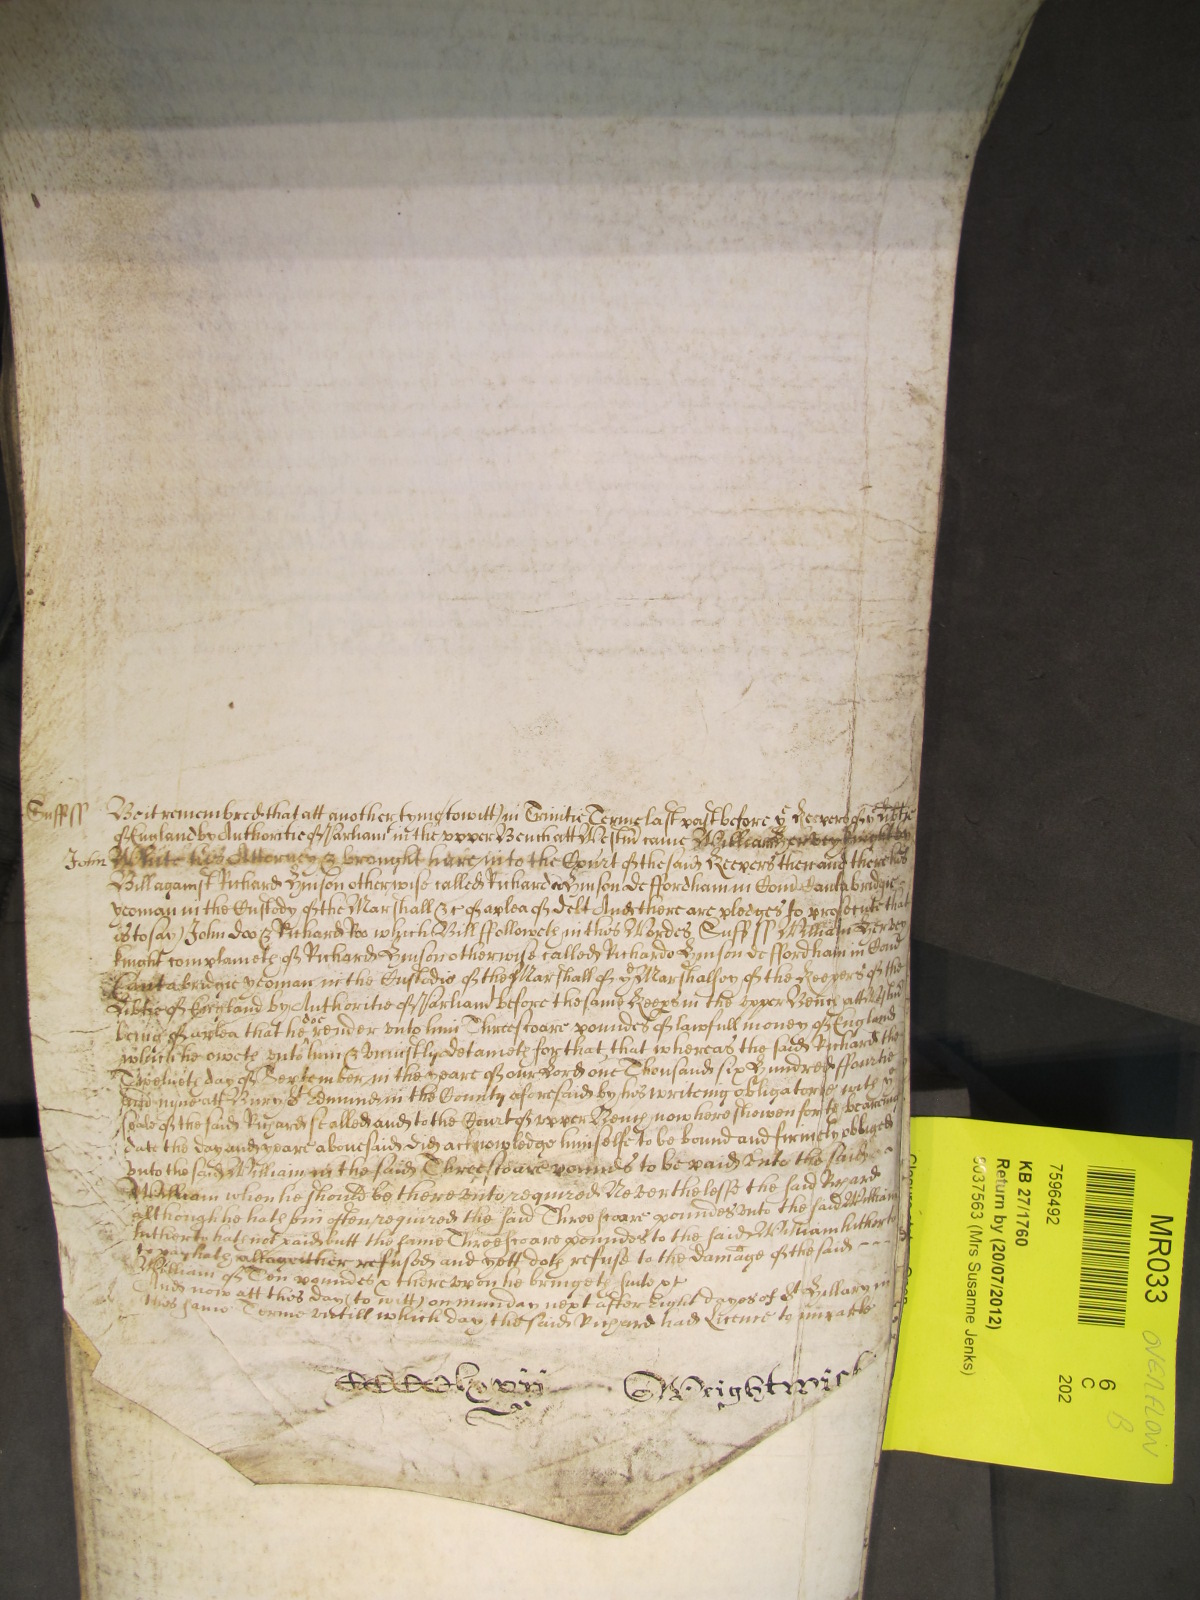 Suff ss Be it remembred that att another tyme (to witt) in Trinitie Terme last past before ye Keepers of ye Libtie
of England by Authoritie of Parliamt in the vpper Bench att Westm came William Hervey knight by
John White his Attorney & brought here into the Court of the said Keepers then and there his
Bill against Richard Hynson otherwise called Richard Hynson de ffordham in Com Cantabridgie
yeoman in the Custody of the Marshall &c of a plea of debt And there are pledges to prosecute that
is to say) John doo & Richard Roo which Bill ffolloweth in thes Wordes Suff ss William Hervey
knight complaineth of Richard Hynson otherwise called Richardo Hynson de ffordham in Com
Cantabridgie yeoman in the Custodie of the Marshall of ye Marshalsey of the Keepers of the
Libtie of England by Authoritie of Parliamt before the same Keeps in the vpper Bench att Westm
being of a plea that he doe render vnto him Threescoare poundes of lawfull money of England
which he oweth vnto him & vniustly detaineth for that that whereas the said Richard the
Twelueth day of September in the yeare of our Lord one Thousand six Hundred ffourtie
and nyne att Bury St Edmunds in the County aforesaid by his writeing obligatorie with ye
seale of the said Richard sealled and to the Court of vpper Bench now here showen forth bearing
date the day and yeare abouesaid did acknowledge himselfe to be bound and firmely obliged
vnto the said William in the said Threescoare pounds to be paid vnto the said
William when he should be therevnto required Neverthelesse the said Richard
although he hath bin often required the said Threescoare poundes vnto the said William
hitherto hath not paid butt the same Threescoare poundes to the said William hitherto
to pay hath altogeither refused and yett doth refuse to the damage of the said
William of Ten poundes & therevpon he bringeth suite &c
And now att this day (to witt) on munday next after Eight dayes of St Hillary in
this same Terme vntill which day the said Richard had Licence to imparle
CCCClxvii Wrightwick
MR033
OVERFLOW
B
6
C
202
7596492
KB 27/1760
Return by (20/07/2012)
(Mrs Susanne Jenks)